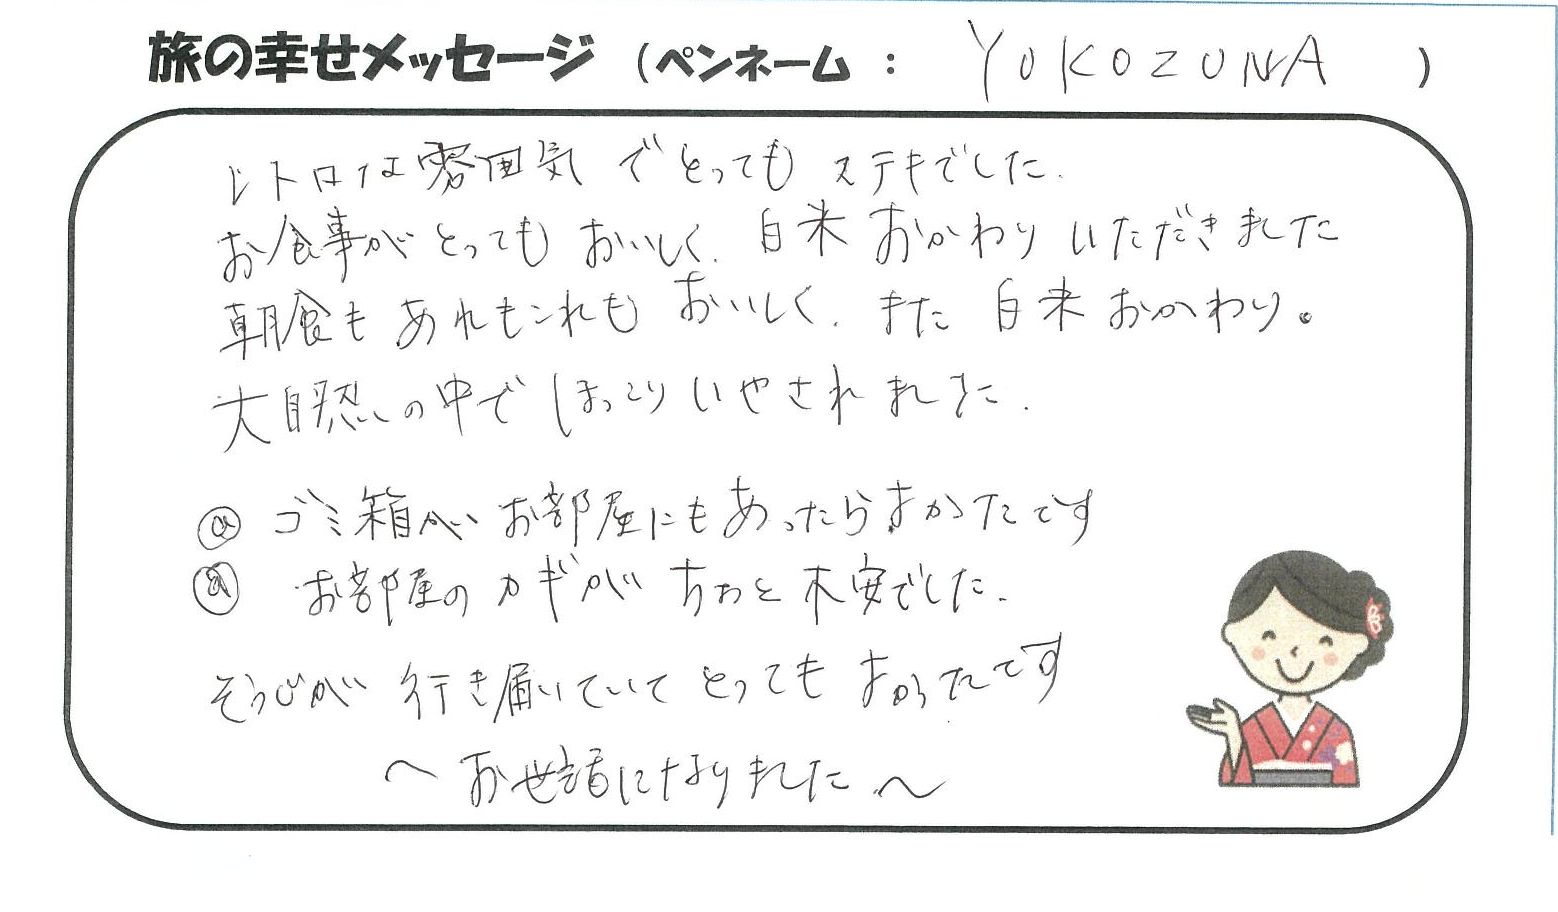 旅の幸せメッセージ (ペンネーム : YOKOZUNA )
レトロな雰囲気でとってもステキでした.
お食事がとってもおいしく. 白米おかわりいただきました
朝食もあれもこれもおいしく. また白米おかわり。
大自然の中でほっこりいやされました.
ゴミ箱がお部屋にもあったらよかったです
お部屋のカギがちょっと不安でした.
そうじが行き届いていてとってもよかったです
〜お世話になりました〜